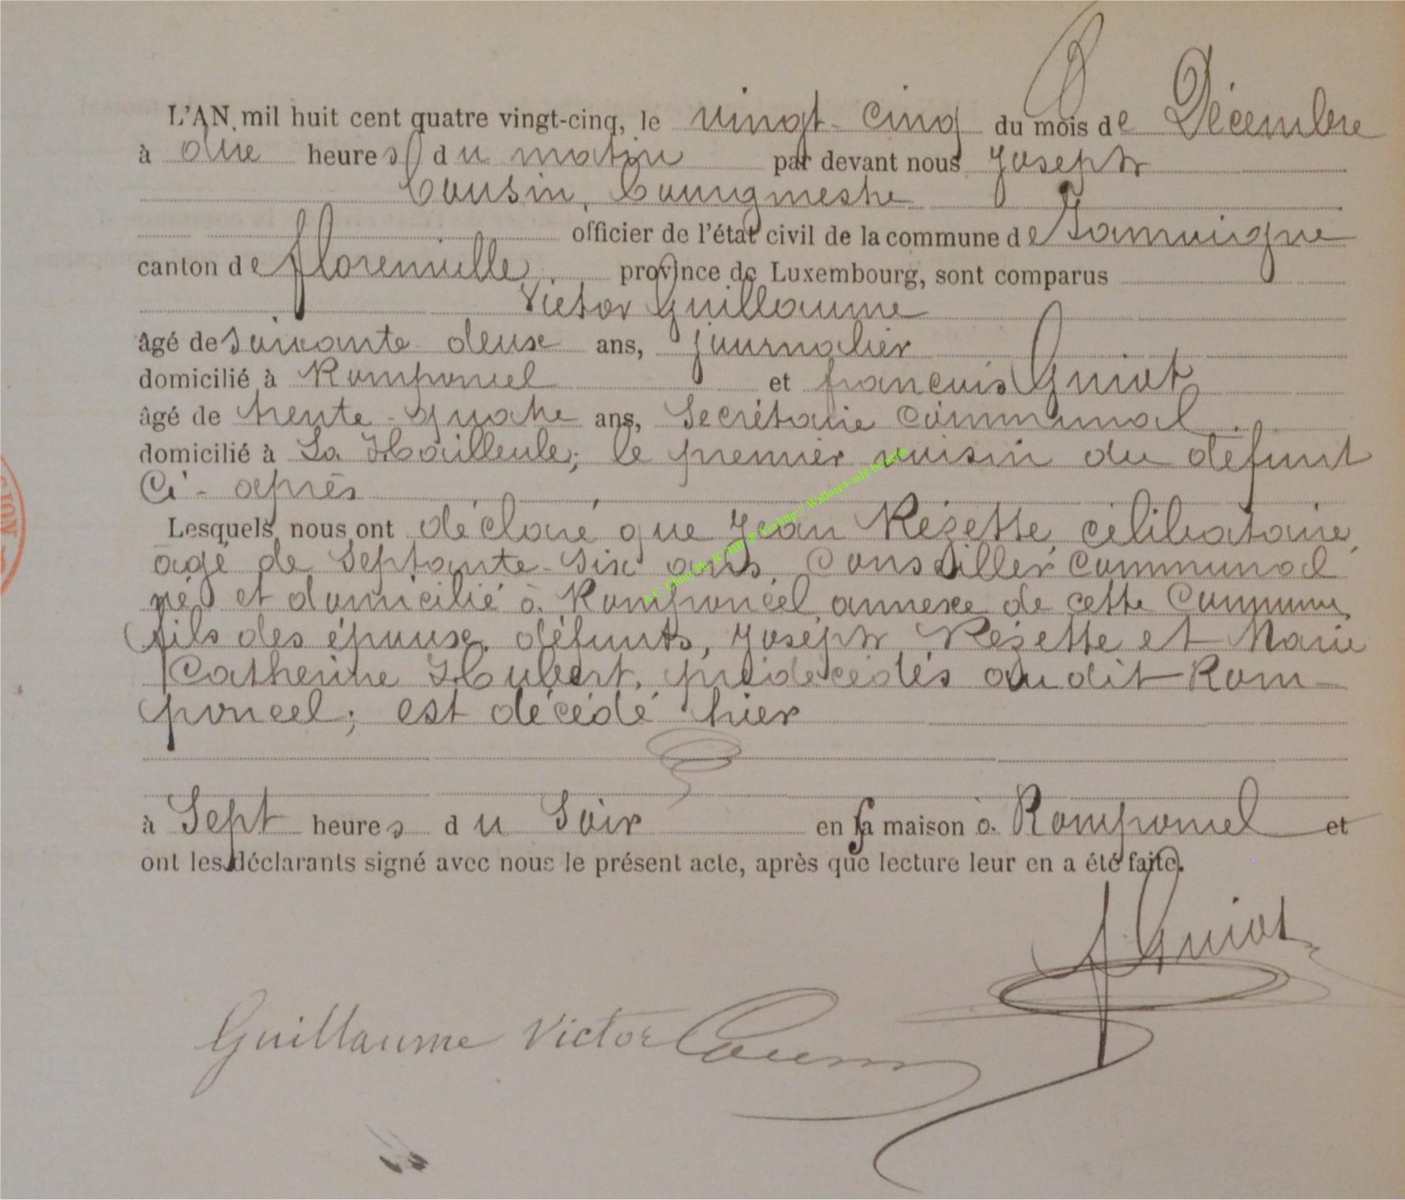 L'AN mil huit cent quatre vingt-cinq, le vingt-cinq du mois de Décembre
à onze heures du matin par devant nous Joseph
Cousin, bourgmestre
officier de l'état civil de la commune de Jamoigne
canton de florenville province de Luxembourg, sont comparus
Victor Guillaume
âgé de soixante deux ans, journalier
domicilié à Romponcel et françois Guiot
âgé de trente-quatre ans, Secrétaire Communal
domicilié à La Hailleule; le premier voisin du défunt
Ci-après
Lesquels nous ont déclaré que Jean Rézette, célibataire,
agé de Septante-six ans, Conseiller Communal
né et domicilié à Romponcel annexe de cette Commune
fils des époux défunts, Joseph Rézette et Marie
Catherine Hubert, prédécédés au dit Rom-
poncel; est décédé hier
à Sept heures du Soir en sa maison à Romponcel et
ont les déclarants signé avec nous le présent acte, après que lecture leur en a été faite.
f. Guiot
Guillaume Victor Cousin